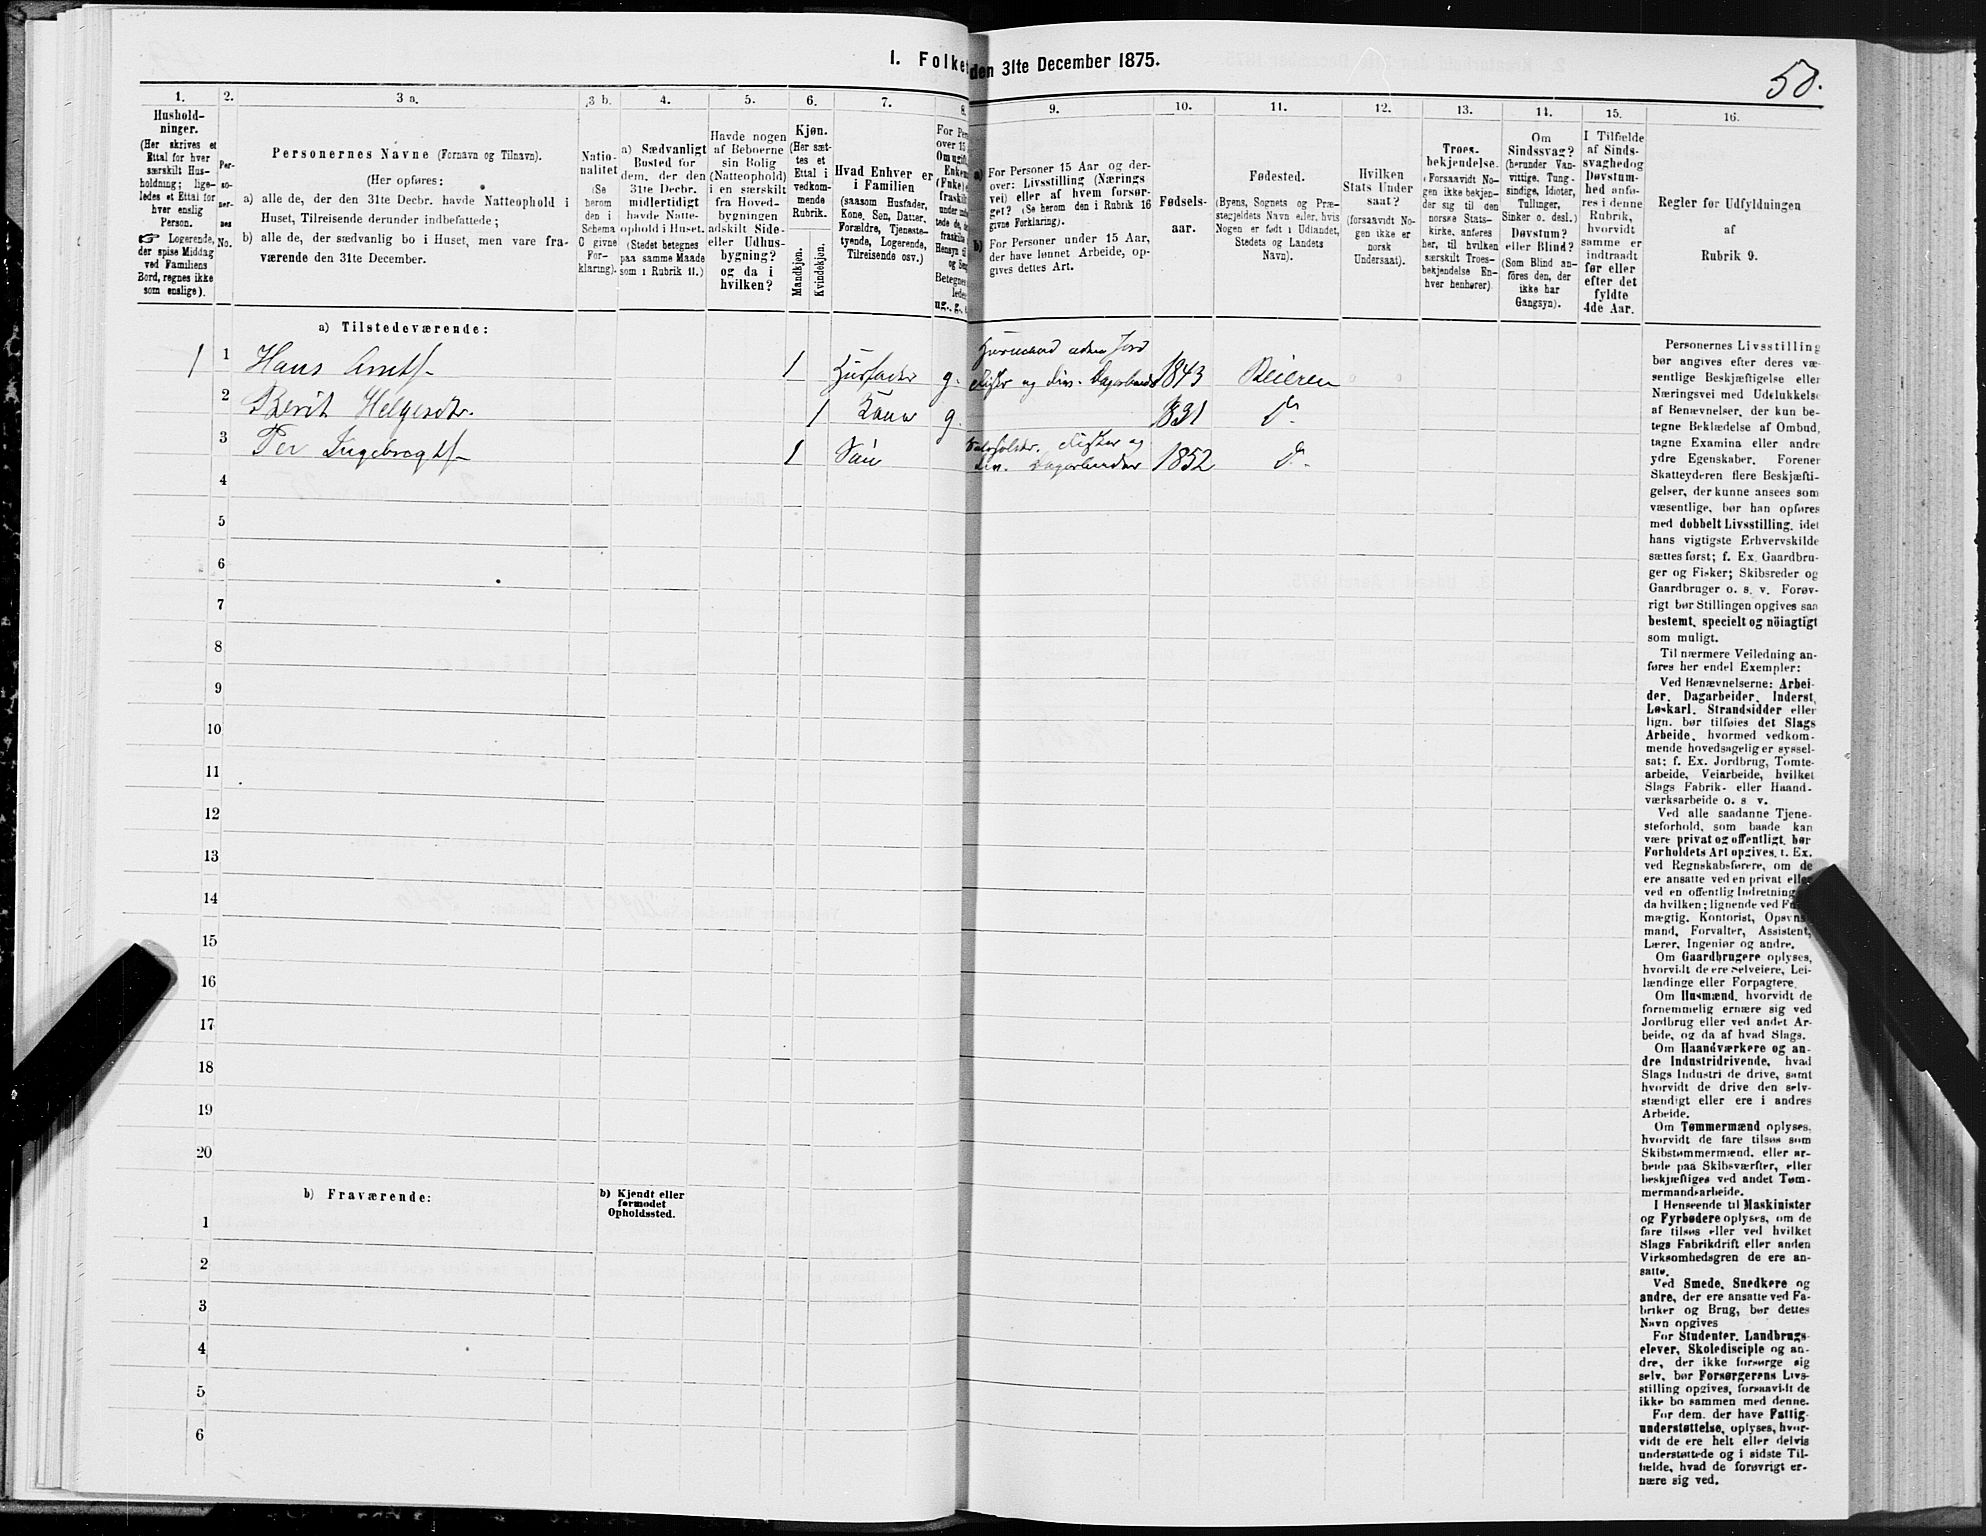 I. Folket den 31te December 1875.
50.
1. 2. 3 a. 3 b. 4. 5. 6. 7. 8. 9. 10. 11. 12. 13. 14. 15. 16.
Hushold-
ninger.
(Her skrives et
Ettal for hver
særskilt Hus-
holdning; lige-
ledes et Ettal for
hver enslig
Person.
☞ Logerende,
der spise Middag
ved Familiens
Bord, regnes ikke
som enslige).
Per-
so-
ner-
nes
No.
Personernes Navne (Fornavn og Tilnavn).
(Her opføres:
a) alle de, der den 31te Decbr. havde Natteophold i
Huset, Tilreisende derunder indbefattede;
b) alle de, der sædvanlig bo i Huset, men vare fra-
værende den 31te December.
Natio-
nalitet
(Se
herom
den i
Schema
C givne
For-
klaring).
a) Sædvanligt
Bosted for
dem, der den
31te Decbr.
midlertidigt
havde Natte-
ophold i Huset.
(Stedet betegnes
paa samme Maade
som i Rubrik 11.)
Havde nogen
af Beboerne
sin Bolig
(Natteophold)
i en særskilt
fra Hoved-
bygningen
adskilt Side-
eller Udhus-
bygning?
og da i
hvilken?
Kjøn.
(Her sæt-
tes et
Ettal i
vedkom-
mende
Rubrik.
Mandkjøn.
Kvindekjøn.
Hvad Enhver er
i Familien
(saasom Husfader,
Kone, Søn, Datter,
Forældre, Tjeneste-
tyende, Logerende,
Tilreisende osv.)
For Per
over 15
Om ugift,
Enkem
(Enke) e
fraskilt
a) For Personer 15 Aar og der-
over: Livsstilling (Nærings
vei) eller af hvem forsør-
get? (Se herom den i Rubrik 16
givne Forklaring).
b) For Personer under 15 Aar,
der have lønnet Arbeide, op-
gives dettes Art.
Fødsels-
aar.
Fødested.
(Byens, Sognets og Præ-
stegjeldets Navn eller, hvis
Nogen er født i Udlandet,
Stedets og Landets
Navn).
Hvilken
Stats Under
saat?
(forsaavidt No-
gen ikke er
norsk
Undersaat).
Troes-
bekjendelse.
(Forsaavidt No-
gen ikke bekjen-
der sig til den
norske Stats-
kirke, anføres
her, til hvilken
særskilt Troes-
bekjendelse En-
hver henhører)
Om
Sindssvag?
(herunder Van-
vittige, Tung-
sindige, Idioter,
Tullinger,
Sinker o. desl.)
Døvstum?
eller Blind?
(Som Blind an-
føres den, der
ikke har
Gangsyn).
I Tilfælde
af Sinds-
svaghed og
Døvstum-
hed anfø-
res i denne
Rubrik,
hvorvidt
samme er
indtraadt
før eller
efter det
fyldte
4de Aar.
Regler for Udfyldningen
af
Rubrik 9.
a) Tilstedeværende:
Husmand uden Jord
1 1 Hans Arnts. 1 Husfader g. Fisker og div. Dagarbeide 1843 Beieren
2 Berit Helgesdtr. 1 Kone g. 1831 Do.
3 Per Ingebrigts. 1 Søn Fisker og
div. Dagarbeider 1852 Do.
4
5
6
7
8
9
10
11
12
13
14
15
16
17
18
19
20
b) Fraværende:
b) Kjendt eller
formodet
Opholdssted.
1
2
3
4
5
6
Personernes Livsstilling
bør angives efter deres væ-
sentlige Beskjæftigelse eller
Næringsvei med Udelukkelse
af Benævnelser, der kun be-
tegne Beklædelse af Ombud,
tagne Examina eller andre
ydre Egenskaber. Forener
Skatteyderen flere Beskjæfti-
gelser, der kunne ansees som
væsentlige, bør han opføres
med dobbelt Livsstilling, idet
hans vigtigste Erhvervskilde
sættes først; f. Ex. Gaardbru-
ger og Fisker; Skibsreder og
Gaardbruger o. s. v. Forøv-
rigt bør Stillingen opgives saa
bestemt, specielt og nöiagtigt
som muligt.
Til nærmere Veiledning an-
føres her endel Exempler:
Ved Benævnelserne: Arbei-
der, Dagarbeider, Inderst,
Løskarl, Strandsidder eller
lign. bør tilføies det Slags
Arbeide, hvormed vedkom-
mende hovedsagelig er syssel-
sat; f. Ex. Jordbrug, Tomte-
arbeide, Veiarbeide, hvilket
Slags Fabrik- eller Haand-
værksarbeide o. s v.
Ved alle saadanne Tjene-
steforhold, som baade kan
være privat og offentligt, bør
Forholdets Art opgives, t. Ex.
ved Regnskabsførere, om de
ere ansatte ved en privat eller
ved en offentlig Indretning
da hvilken; lignende ved Fu
mægtig, Kontorist, Opsyns
mand, Forvalter, Assistent,
Lærer, Ingeniør og andre.
Om Gaardbrugere oplyses,
hvorvidt de ere Selveiere, Lei-
lændinge eller Forpagtere.
Om Husmænd, hvorvidt de
fornemmelig ernære sig ved
Jordbrug eller ved andet Ar-
beide, og da af hvad Slags.
Om Haandværkere og an-
dre Industridrivende, hvad
Slags Industri de drive, samt
hvorvidt de drive den selv-
stændigt eller ere i andres
Arbeide.
Om Tømmermænd oplyses,
hvorvidt de fare tilsøs som
Skibstømmermænd, eller ar-
beide paa Skibsværfter, eller
beskjæftiges ved andet Tøm-
mermandsarbeide.
I Henseende til Maskinister
og Fyrbødere oplyses, om de
fare tilsøs eller ved hvilket
Slags Fabrikdrift eller anden
Virksomhedsgren de ere an-
satte.
Ved Smede, Snedkere og
andre, der ere ansatte ved Fa-
briker og Brug, bør dettes
Navn opgives
For Studenter, Landbrugs-
elever, Skoledisciple og an-
dre, der ikke forsørge sig
selv, bør Forsørgerens Livs-
stilling opgives, forsaavidt de
ikke bo sammen med denne.
For dem, der have Fattig-
understøttelse, oplyses, hvor-
vidt de ere helt eller delvis
understøttede og i sidste Til-
fælde, hvad de forøvrigt er-
nære sig ved.